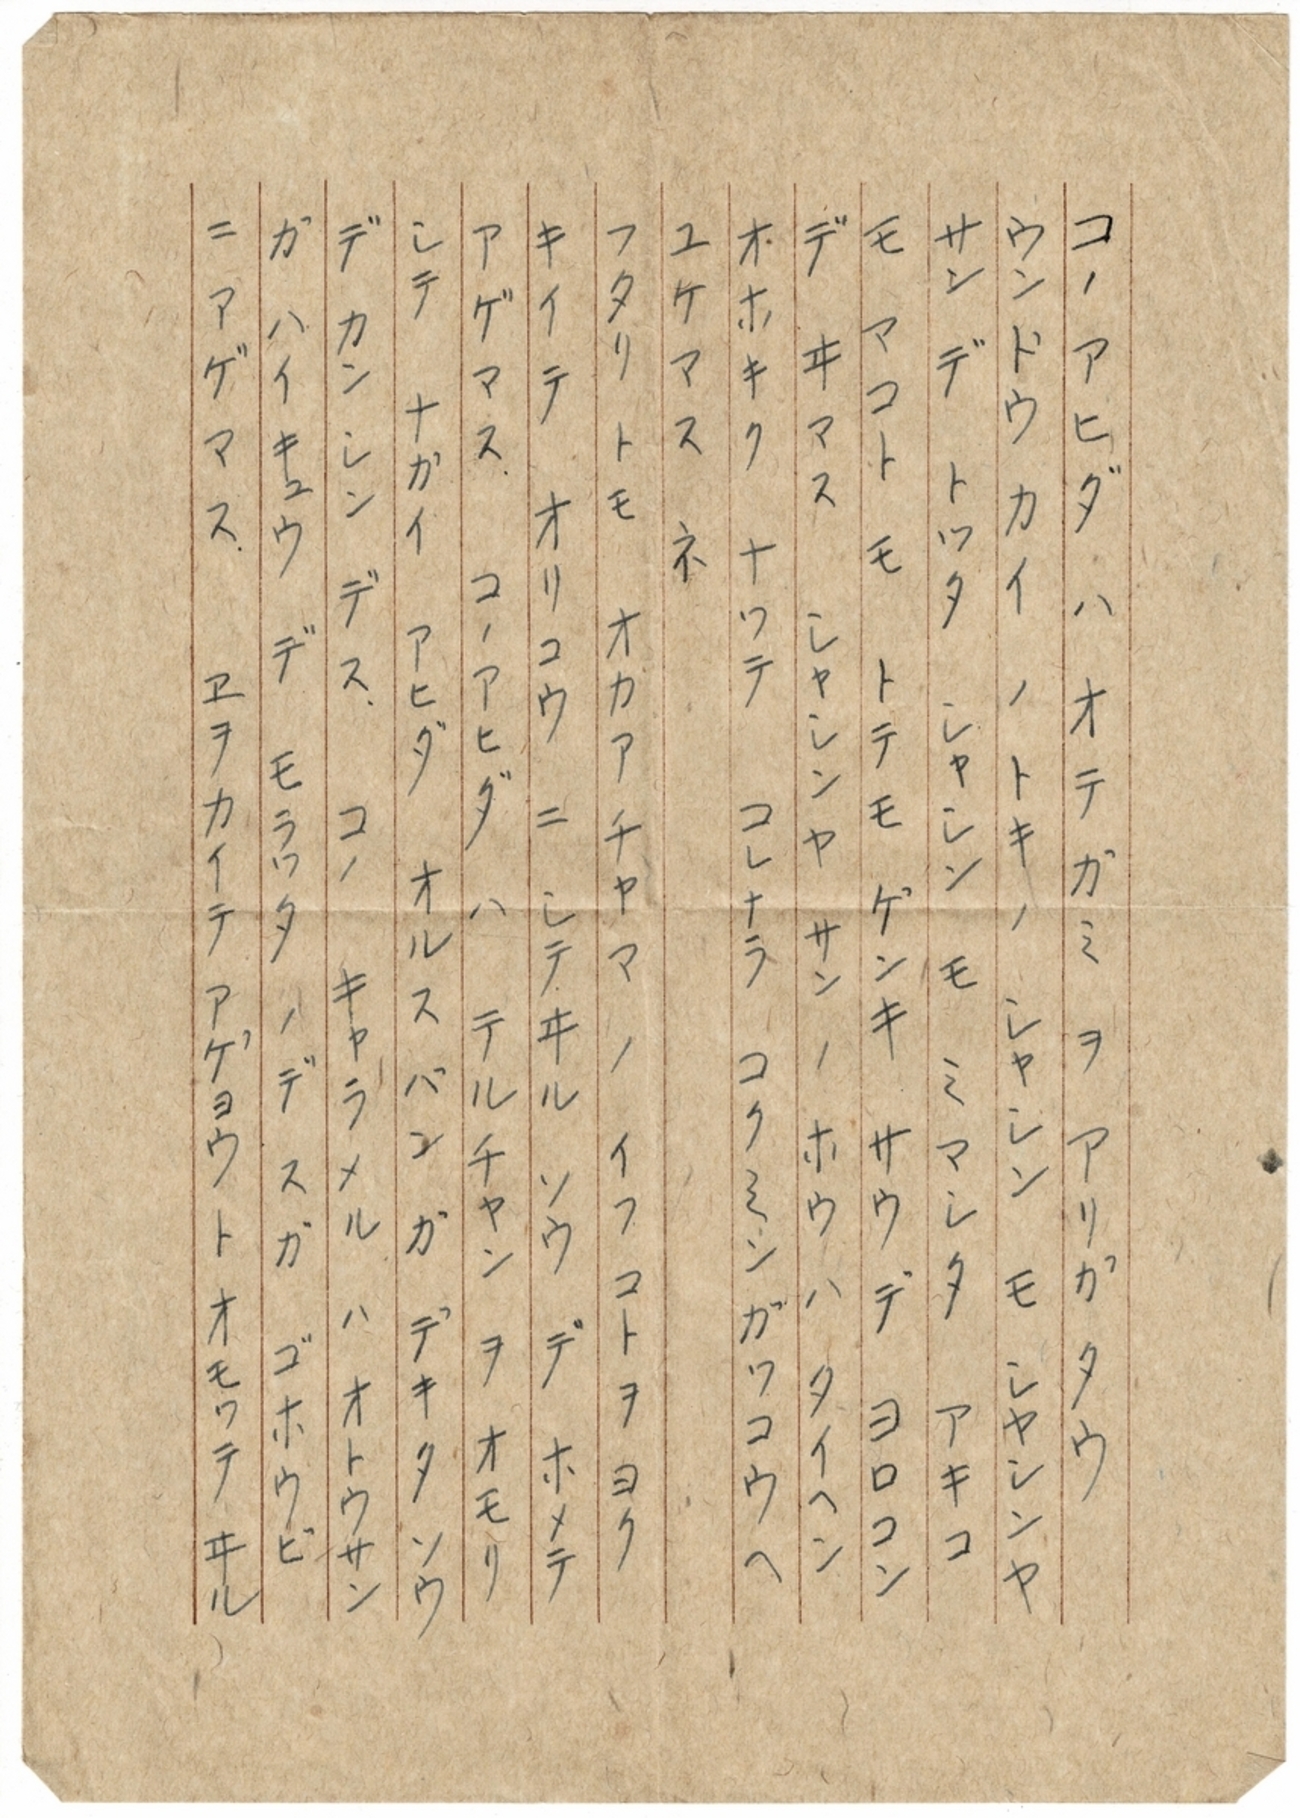 コノアヒダ ハ オテガミ ヲ アリガタウ
ウンドウカイ ノトキノ シャシン モ シャシンヤ
サンデ トッタ シャシン モ ミマシタ アキコ
モ マコト モ トテモ ゲンキ サウデ ヨロコン
デ ヰマス シャシンヤ サンノ ホウハ タイヘン
オホキク ナッテ コレナラ コクミンガッコウヘ
ユケマス ネ
フタリトモ オカアチャマノ イフコトヲヨク
キイテ オリコウニ シテヰル ソウデ ホメテ
アゲマス. コノアヒダ ハ テルチャン ヲ オモリ
シテ ナガイ アヒダ オルスバンガ デキタソウ
デ カンシン デス. コノ キャラメル ハ オトウサン
ガ ハイキュウ デ モラッタ ノデスガ ゴホウビ
ニアゲマス. ヱヲカイテ アゲヨウ ト オモッテヰル